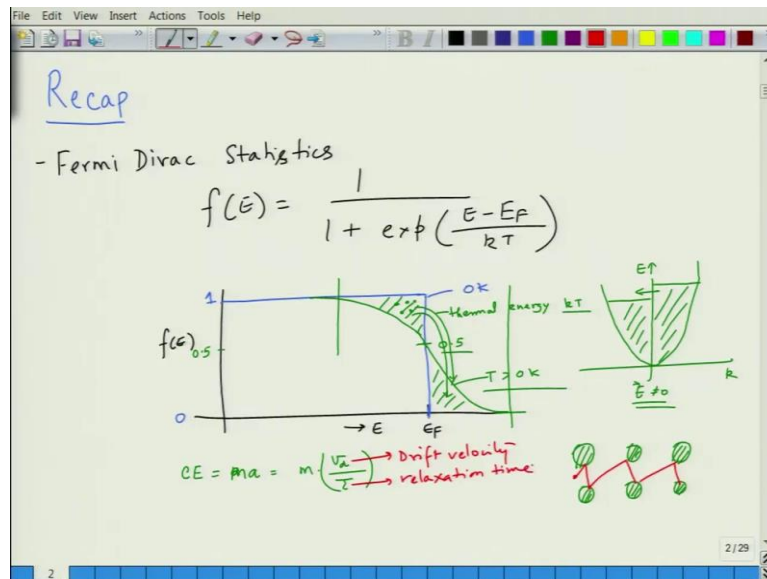 File Edit View Insert Actions Tools Help
Recap
- Fermi Dirac Statistics
f(E) = 1 / (1 + exp((E - EF) / kT))
1
0K
thermal energy kT
f(E)
0.5
0.5
T > 0K
0
→ E
EF
E↑
k
E ≠ 0
eE = ma = m · (vd / τ)
→ Drift velocity
→ relaxation time
2/29
2